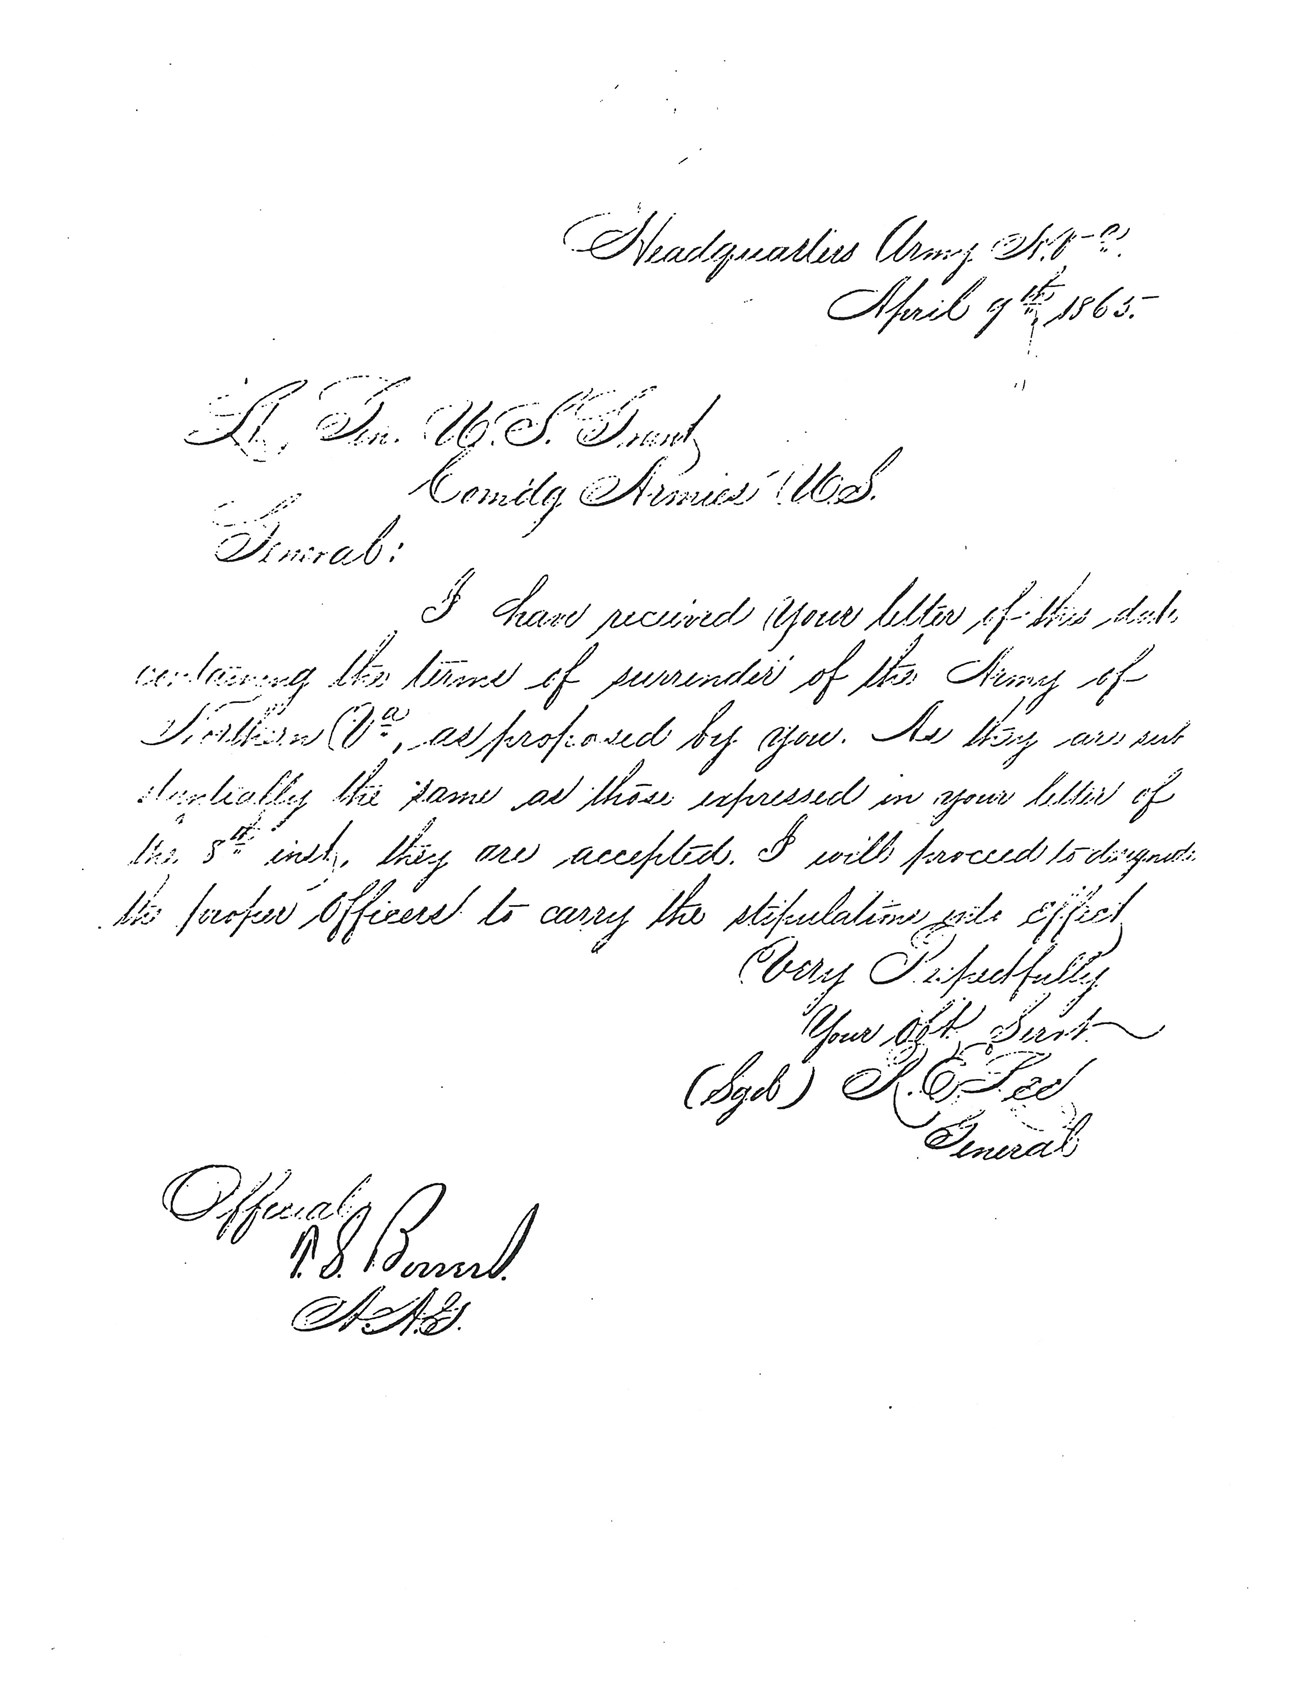 Headquarters Army N. Va.
April 9th, 1865.
Lt. Gen. U.S. Grant,
Comd'g Armies U.S.
General:
I have received your letter of this date
containing the terms of surrender of the Army of
Northern Va, as proposed by you. As they are sub
stantially the same as those expressed in your letter of
the 8th inst, they are accepted. I will proceed to designate
the proper officers to carry the stipulations into effect
Very Respectfully
Your Obt. Servt.
(Sgd) R. E. Lee
General
Official
T. S. Bowers.
A.A.G.